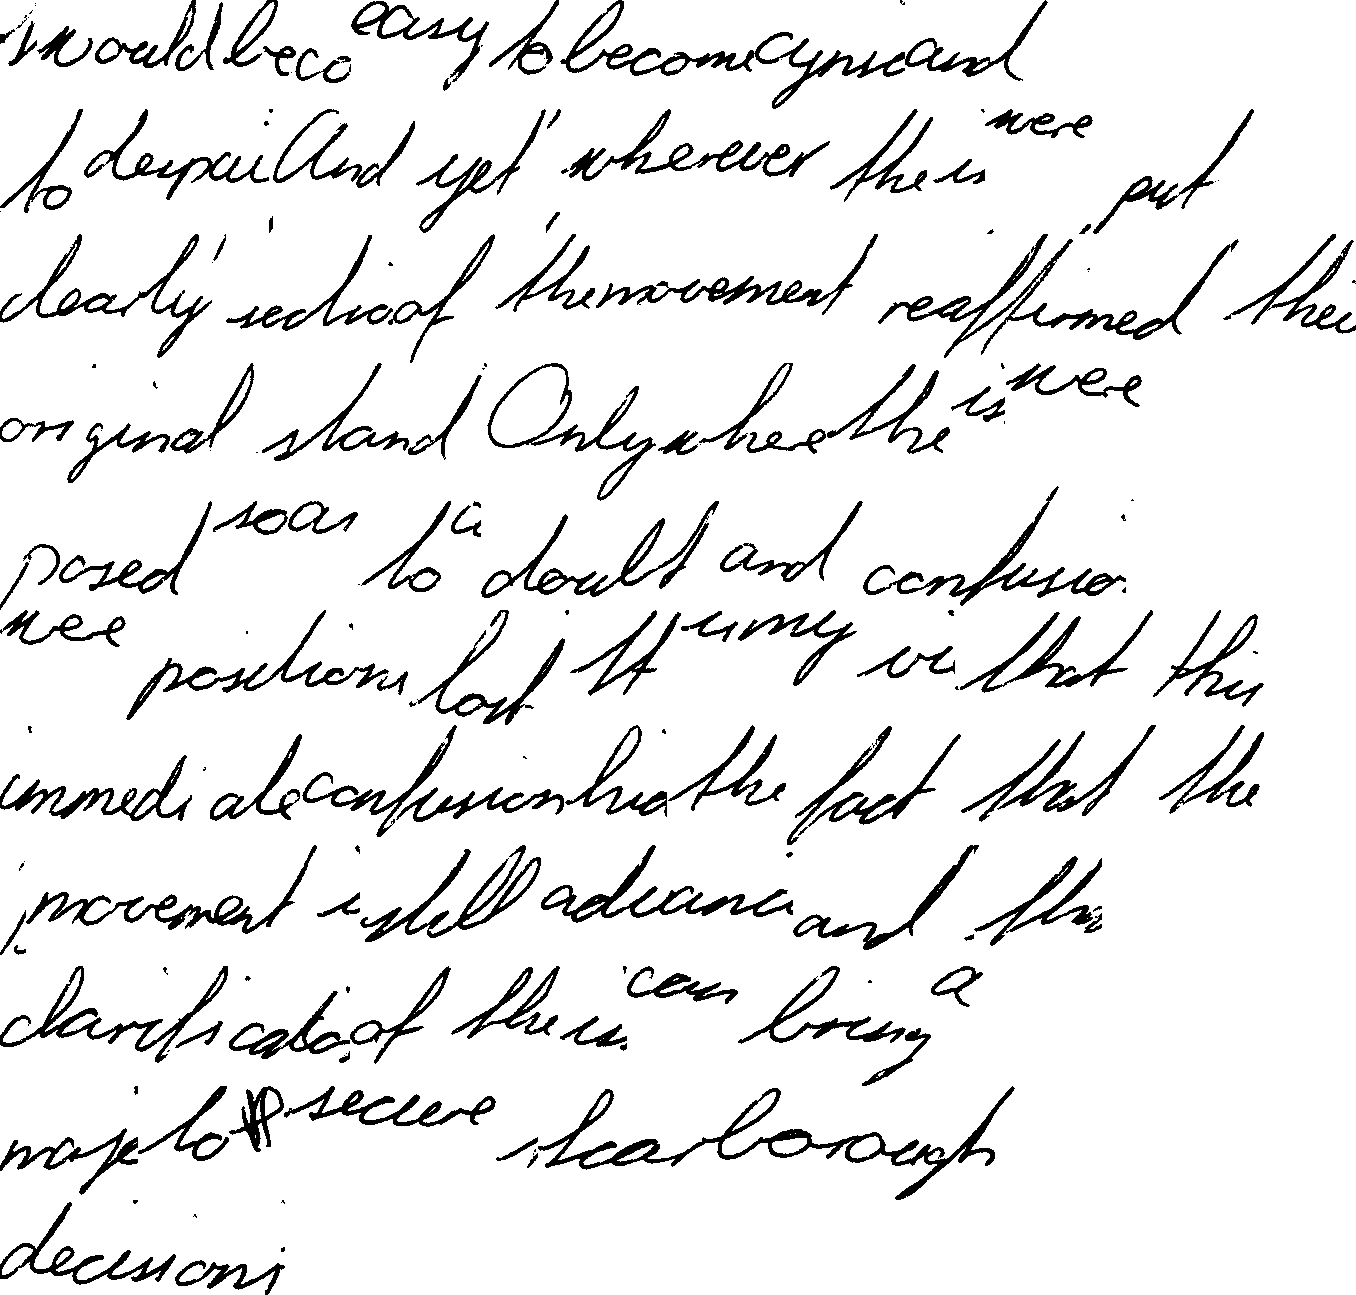 would beco easy to become cynic and
to despai And yet wherever the is were put
clearly sectio of the movement reaffirmed thei
original stand Only where the is were
posed so as to a doubt and confusio
were positions lost It is my vi that this
immediate confusion hid the fact that the
movement is still advanci and tha
clarificatio of the is can bring a
maj to secure Scarborough
decisions